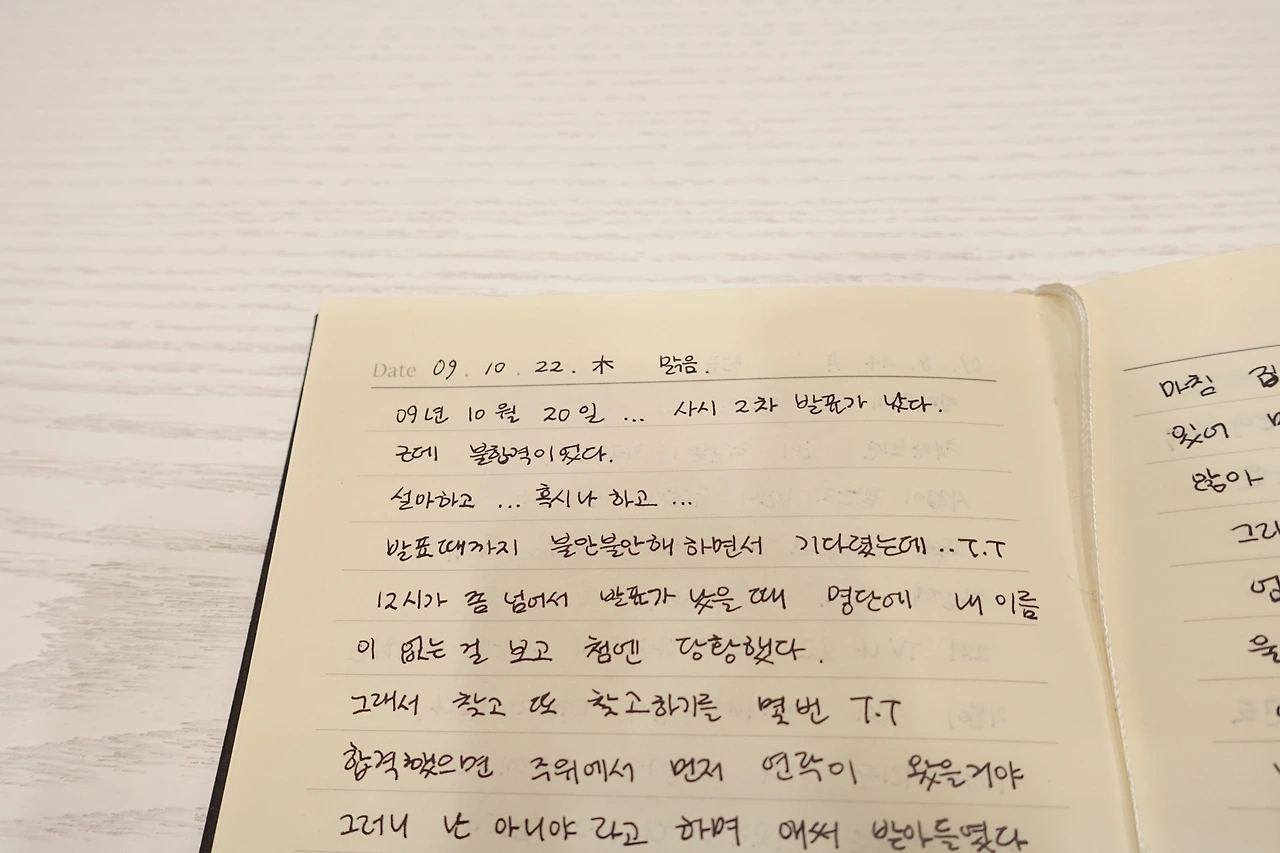 Date 09. 10. 22. 木 맑음.
09년 10월 20일 ... 사시 2차 발표가 났다.
근데 불합격이었다.
설마하고 ... 혹시나 하고 ...
발표때까지 불안불안해 하면서 기다렸는데 ..T.T
12시가 좀 넘어서 발표가 났을 때 명단에 내 이름
이 없는 걸 보고 첨엔 당황했다.
그래서 찾고 또 찾고하기를 몇 번 T.T
합격했으면 주위에서 먼저 연락이 왔을거야
그러니 난 아니야 라고 하며 애써 받아들였다
마침
있어
않아
그래